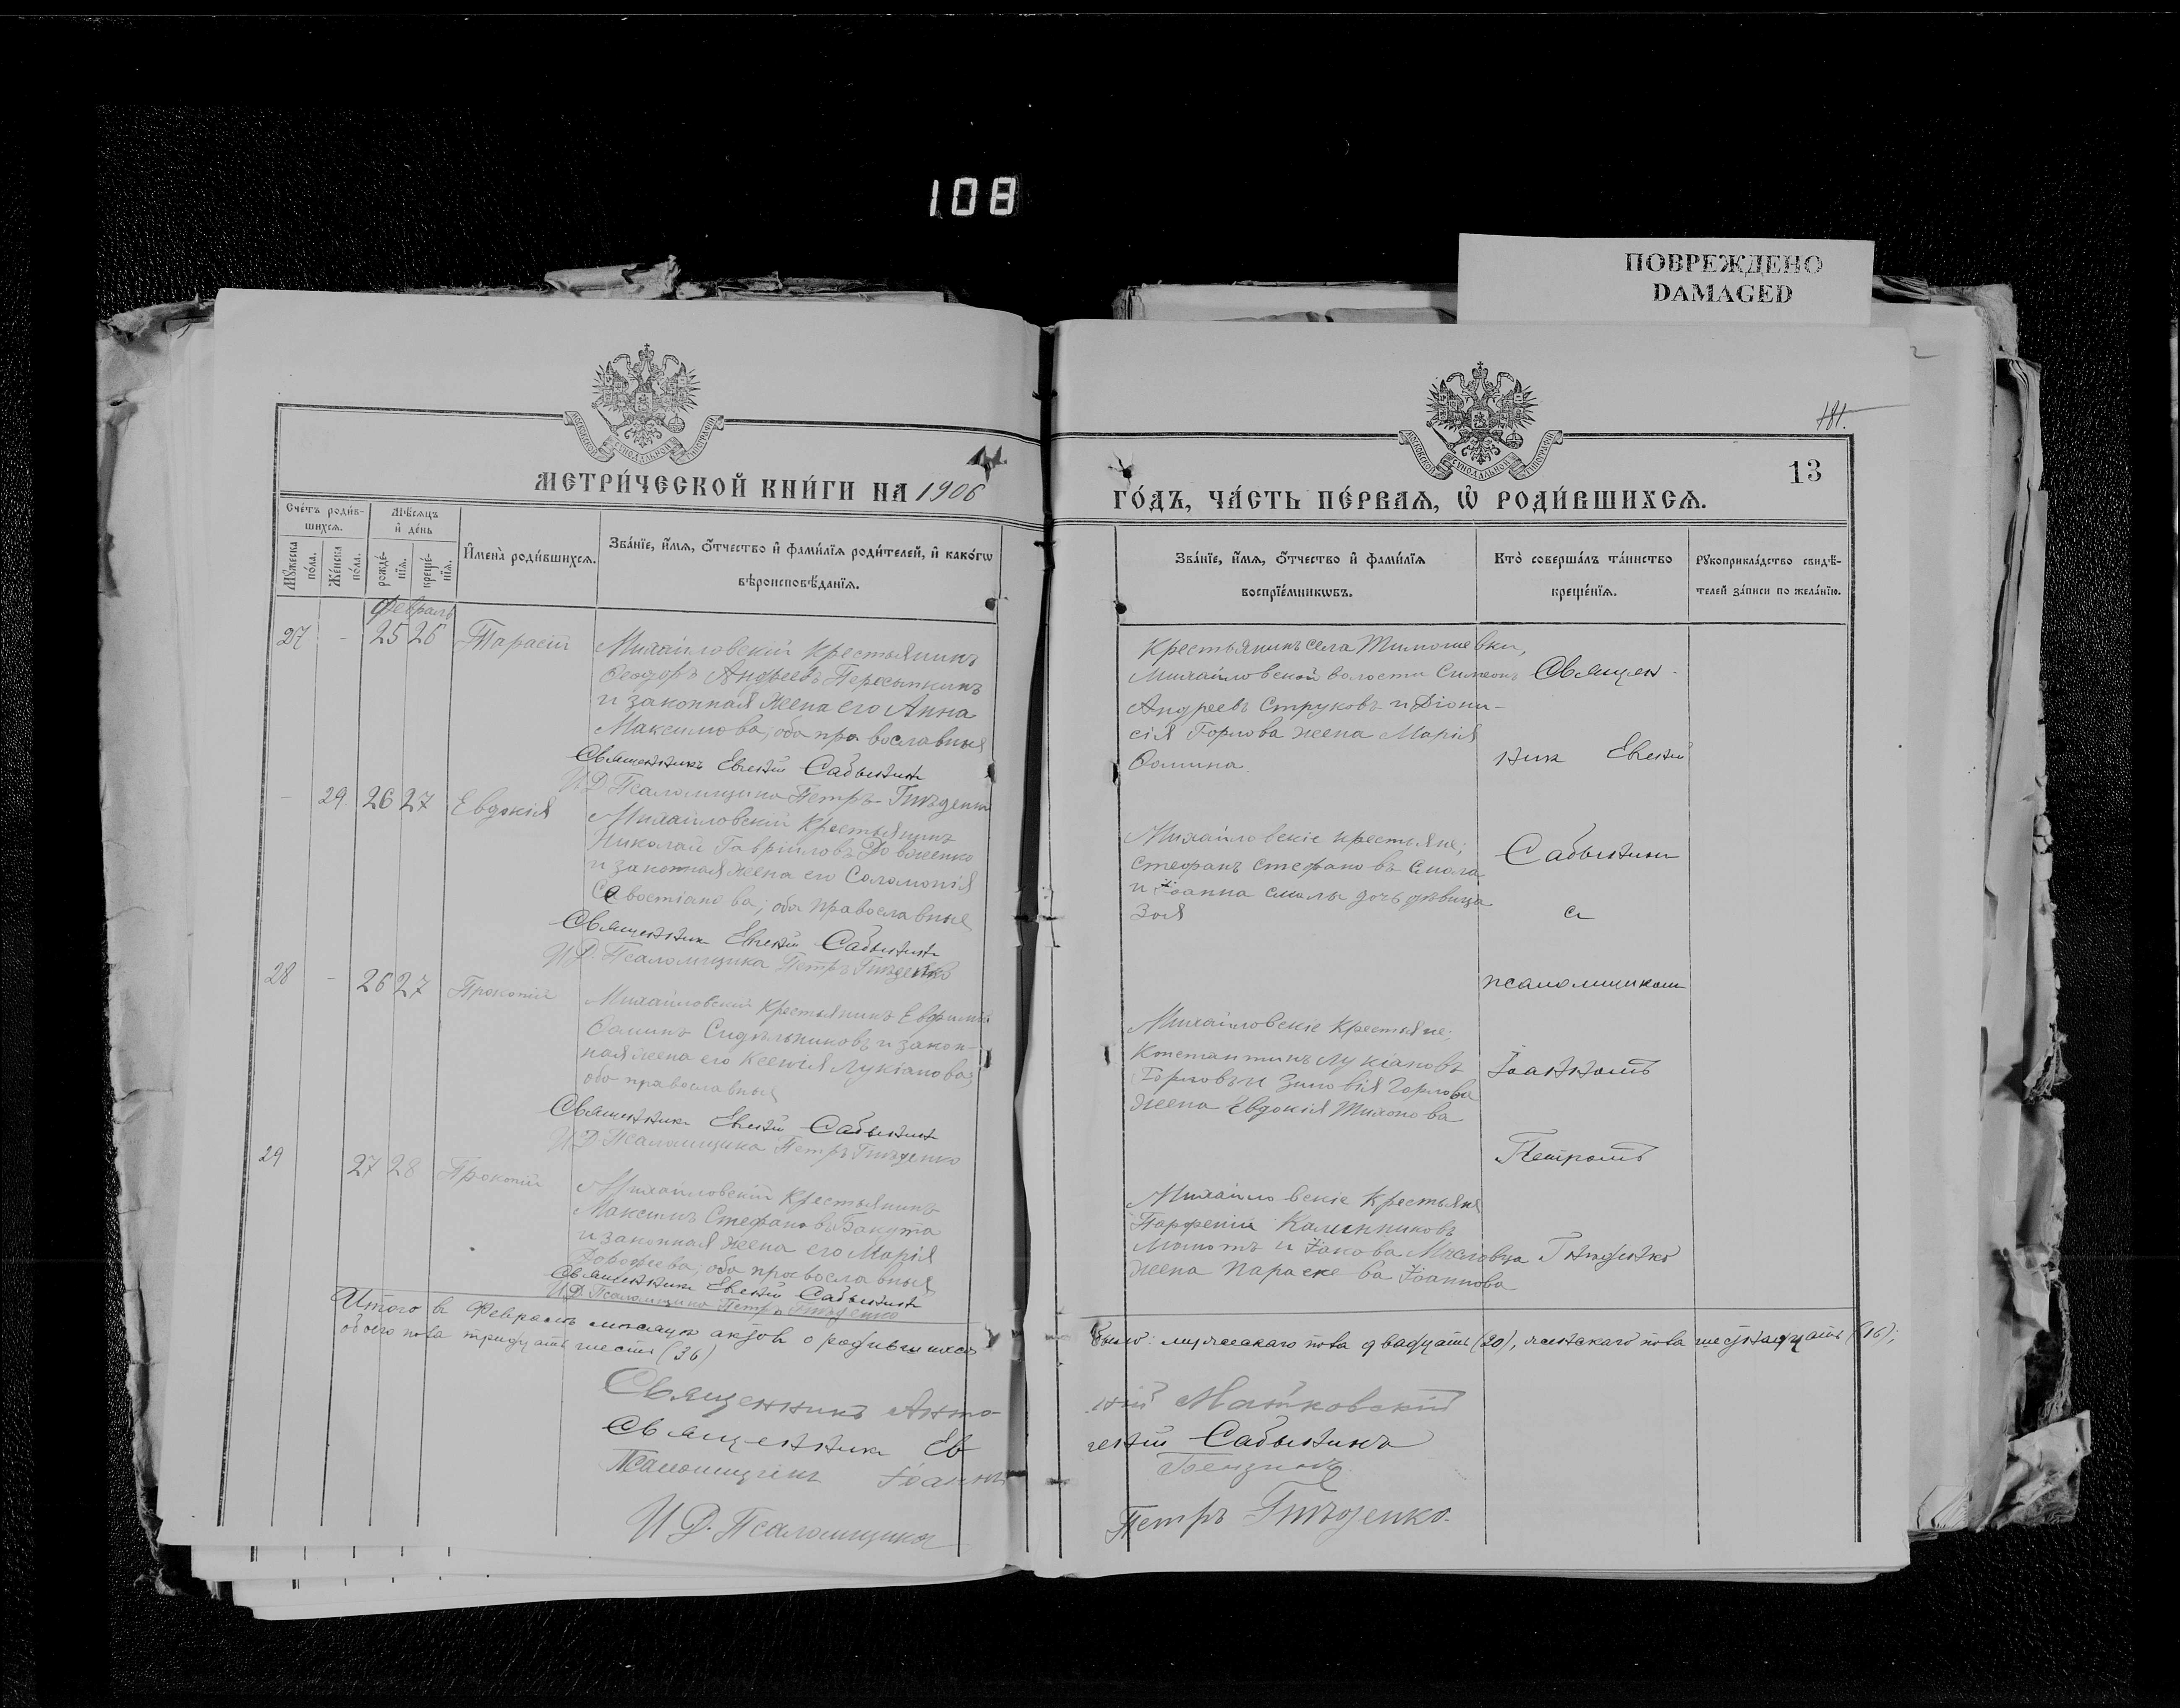 108
ПОВРЕЖДЕНО
DAMAGED
181.
13
МЕТРИ́ЧЕСКОЙ КНИ́ГИ НА 1906
ГО́ДЪ, ЧА́СТЬ ПЕ́РВАЯ, Ѡ҆ РОДИ́ВШИХСѦ.
Сче́тъ роди́в-
шихсѧ.
Мꙋ́жеска по́ла.
Же́нска по́ла.
Мѣ́сѧцъ
и҆ де́нь
рожде́-
нїѧ.
креще́-
нїѧ.
И҆мена̀ роди́вшихсѧ.
Зва́нїе, и҆́мѧ, ѻ҆́тчество и҆ фами́лїѧ роди́телей, и҆ како́гѡ
вѣроисповѣ́данїѧ.
Зва́нїе, и҆́мѧ, ѻ҆́тчество и҆ фами́лїѧ
воспрїе́мникѡвъ.
Кто̀ соверша́лъ та́инство
креще́нїѧ.
Рꙋкоприкла́дство свидѣ́-
телей за́писи по жела́нїю.
Февраль
27 - 25 26 Тарасій
Михайловскій крестьянинъ
Ѳеодоръ Андреевъ Пересыпкинъ
и законная жена его Анна
Максимова, оба православные
Священникъ Евгеній Сабынинъ
И Д Псаломщика Петръ Гнѣденко
Крестьянинъ села Тимошевки,
Михайловской волости Симеонъ
Андреевъ Струковъ и Діони-
сія Горлова жена Марія
Ѳомина.
- 29. 26 27 Евдокія
Михайловскій крестьянинъ
Николай Гавріиловъ Довженко
и законная жена его Соломонія
Севостіанова; оба православные
Священникъ Евгеній Сабынинъ
И Д. Псаломщика Петръ Гнѣденко
Михайловскіе крестьяне;
Стефанъ Стефановъ Смола
и Іоанна Смолы дочь дѣвица
Зоя
28 - 26 27 Прокопій
Михайловскій крестьянинъ Евфимій
Ѳоминъ Сидѣльниковъ и закон-
ная жена его Ксенія Лукіанова;
оба православные
Священникъ Евгеній Сабынинъ
И Д. Псаломщика Петръ Гнѣденко
Михайловскіе крестьяне;
Константинъ Лукіановъ
Горловъ и Зиновія Горлова
жена Евдокія Тихонова
29 27 28 Прокопій
Михайловскій крестьянинъ
Максимъ Стефановъ Бакута
и законная жена его Марія
оба православные
Священникъ Евгеній Сабынинъ
И Д. Псаломщика Петръ Гнѣденко
Михайловскіе крестьяне
Парфеній Калинниковъ
и Іакова
жена Параскева Іоаннова
Священ-
ник Евгеній
Сабынин
с
псаломщиком
Іоанномъ
Петромъ
Гнѣденко
Итого в Феврале месяце актов о родившихся
было: мужескаго пола двадцать (20), женскаго пола шестнадцать (16);
обоего пола тридцать шесть (36)
Священникъ Анто-
ній Матковскій
Священникъ Ев-
геній Сабынинъ
Псаломщикъ Іоаннъ
И Д. Псаломщика
Петръ Гнѣденко.